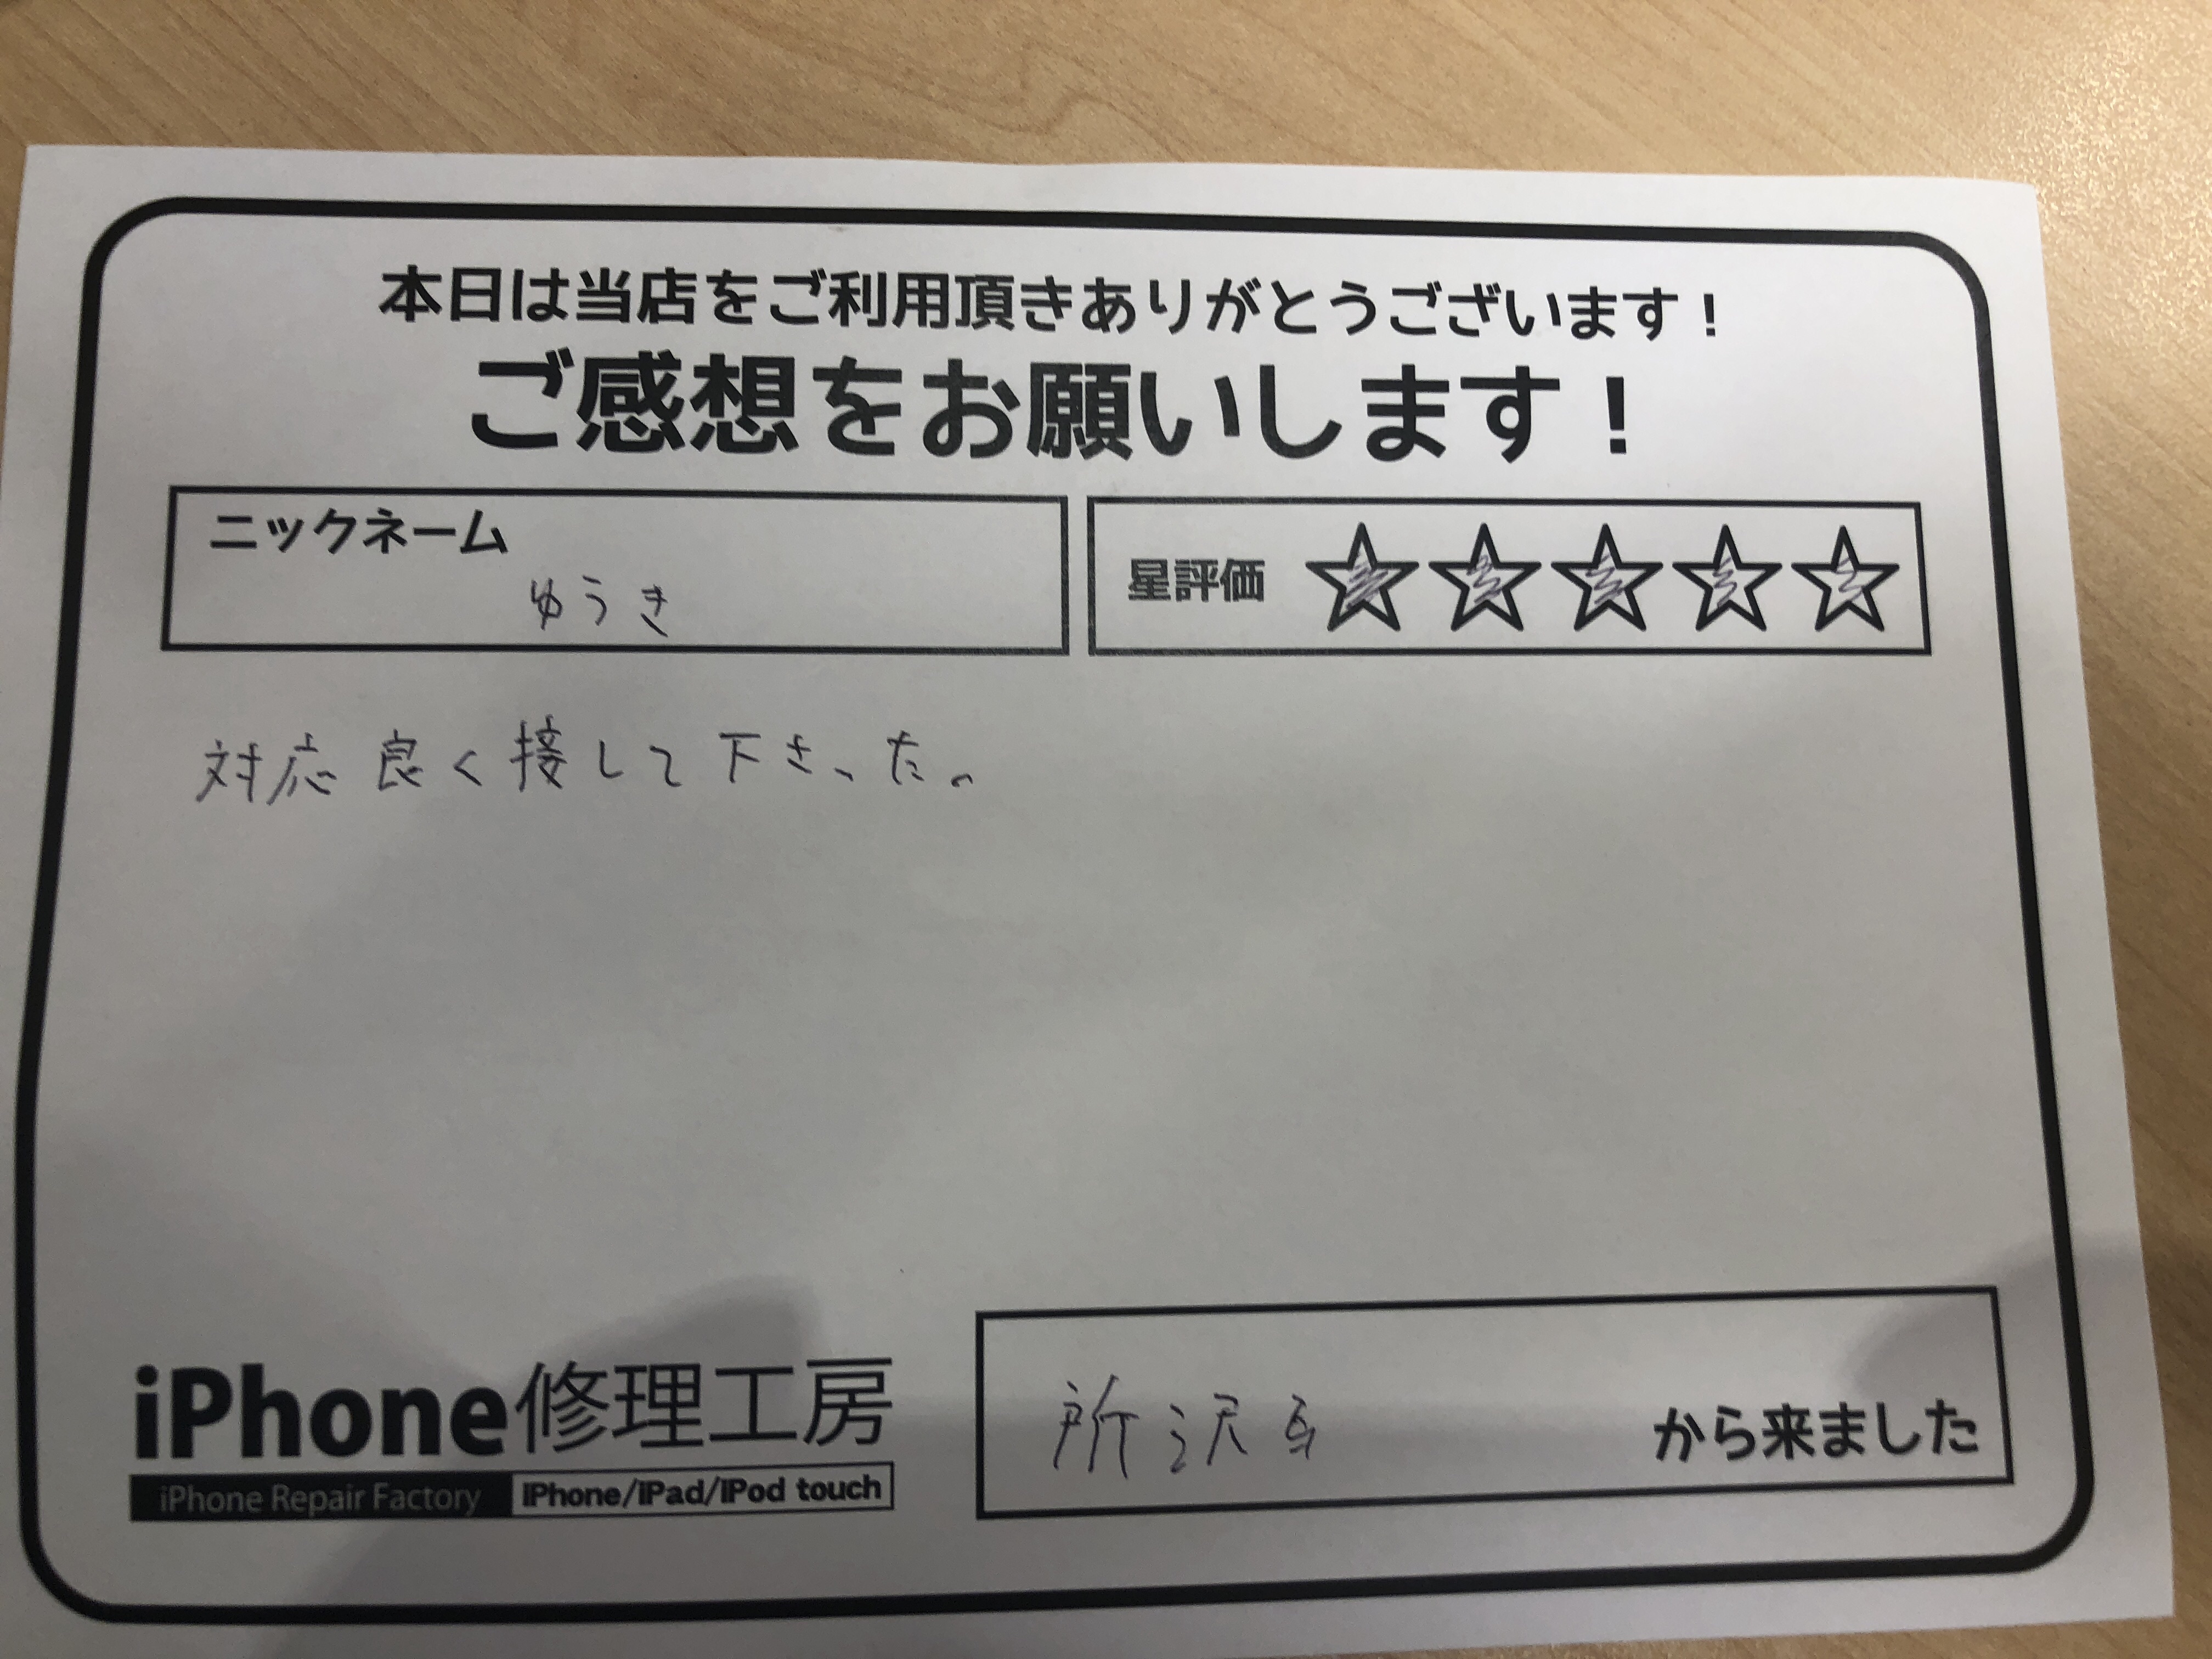 本日は当店をご利用頂きありがとうございます！
ご感想をお願いします！
ニックネーム
ゆうき
星評価 ☆☆☆☆☆
対応良く接して下さった。
所沢 から来ました
iPhone修理工房
iPhone Repair Factory iPhone/iPad/iPod touch